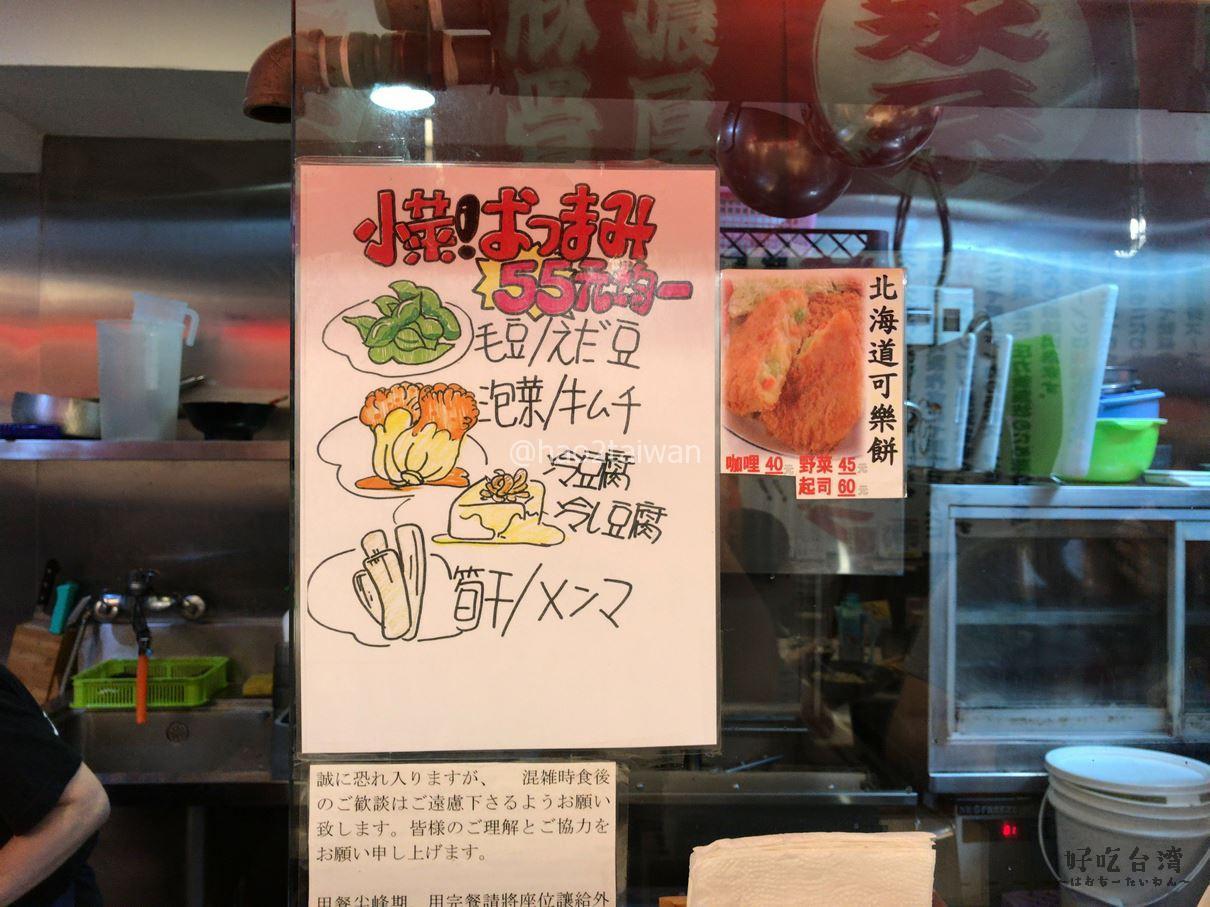 小菜!おつまみ
55元均一
毛豆/えだ豆
泡菜/キムチ
冷豆腐
冷し豆腐
筍干/メンマ
北海道可樂餅
咖哩 40元 野菜 45元
起司 60元
誠に恐れ入りますが、 混雑時食後
のご歓談はご遠慮下さるようお願い
致します。皆様のご理解とご協力を
お願い申し上げます。
用餐尖峰期 用完餐請將座位讓給外
@hao2taiwan
好吃台湾
~はおちーたいわん~